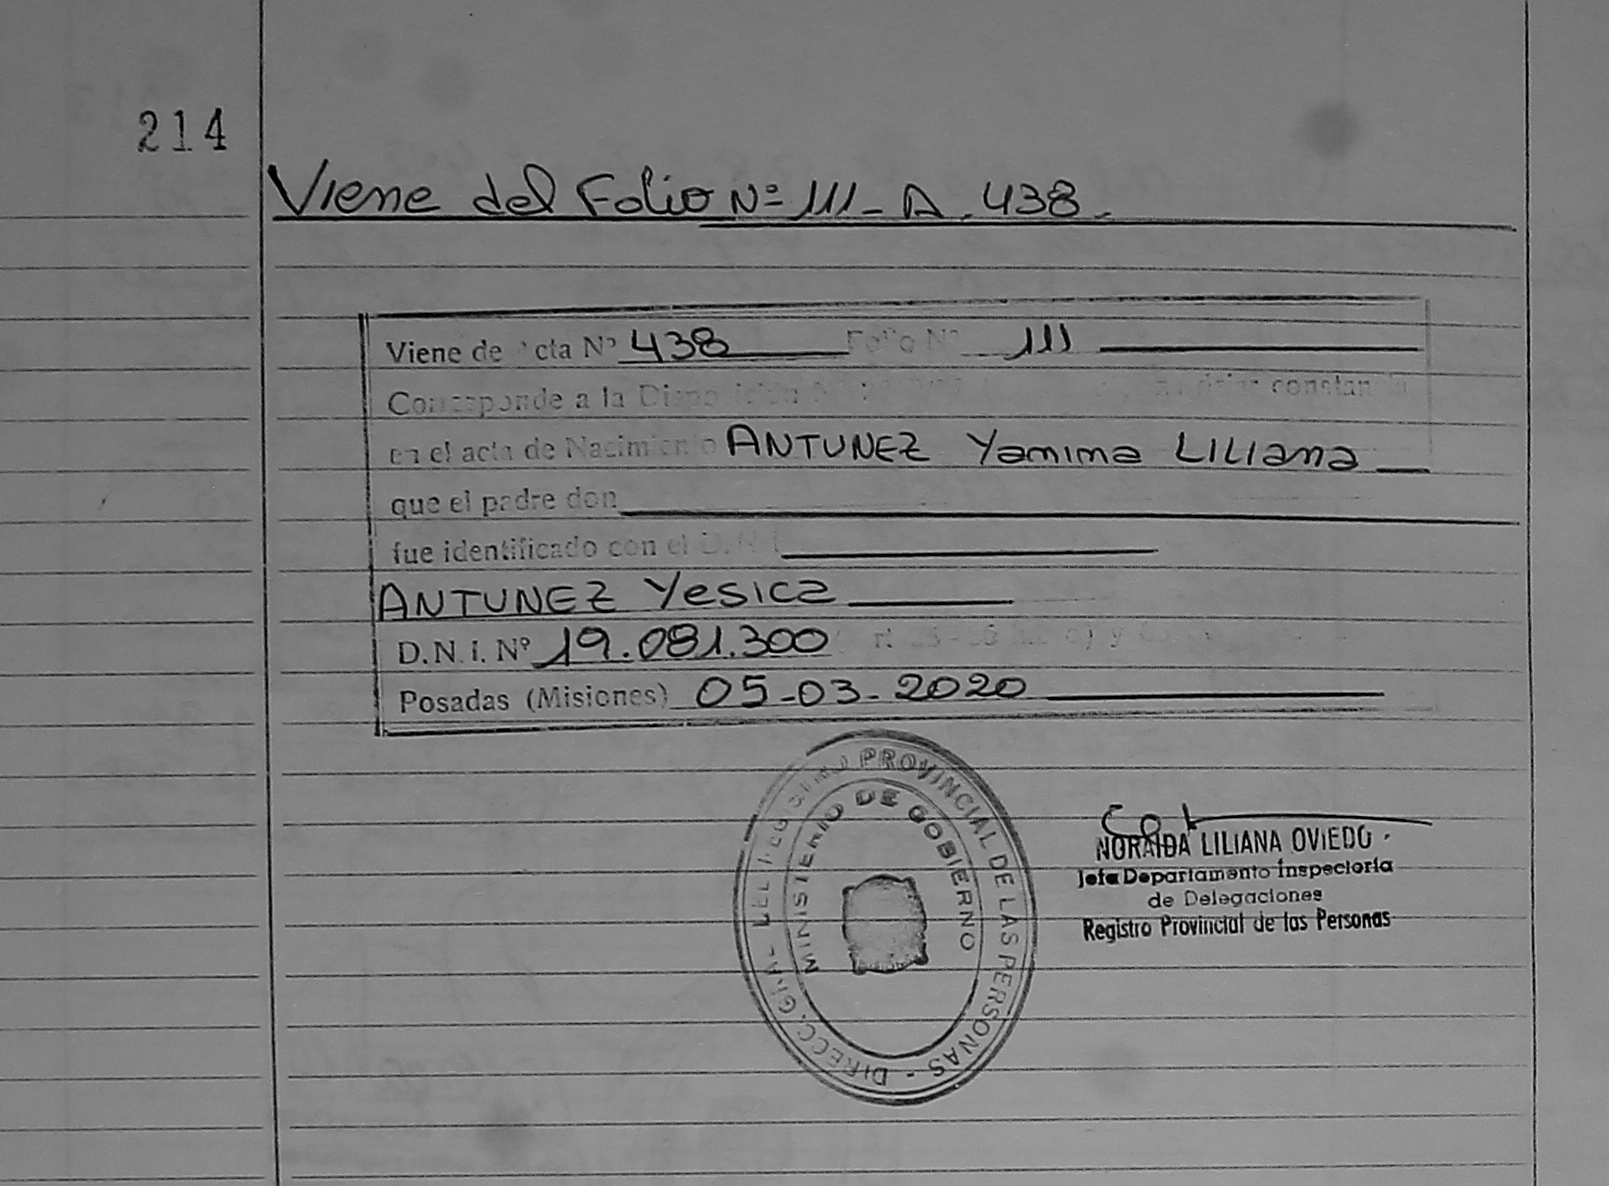 214
Viene del Folio Nº 111 - A. 438.
Viene de cta Nº 438 Folio Nº 111
Corresponde a la Disposición constan
en el acta de Nacimiento ANTUNEZ Yamima Liliana
que el padre don
fue identificado con el D.N.I
ANTUNEZ Yesica
D.N.I. Nº 19.081.300
Posadas (Misiones) 05-03-2020
DIRECC. GRAL. DEL REGISTRO PROVINCIAL DE LAS PERSONAS -
MINISTERIO DE GOBIERNO
NORAIDA LILIANA OVIEDO
Jefa Departamento Inspectoria
de Delegaciones
Registro Provincial de las Personas